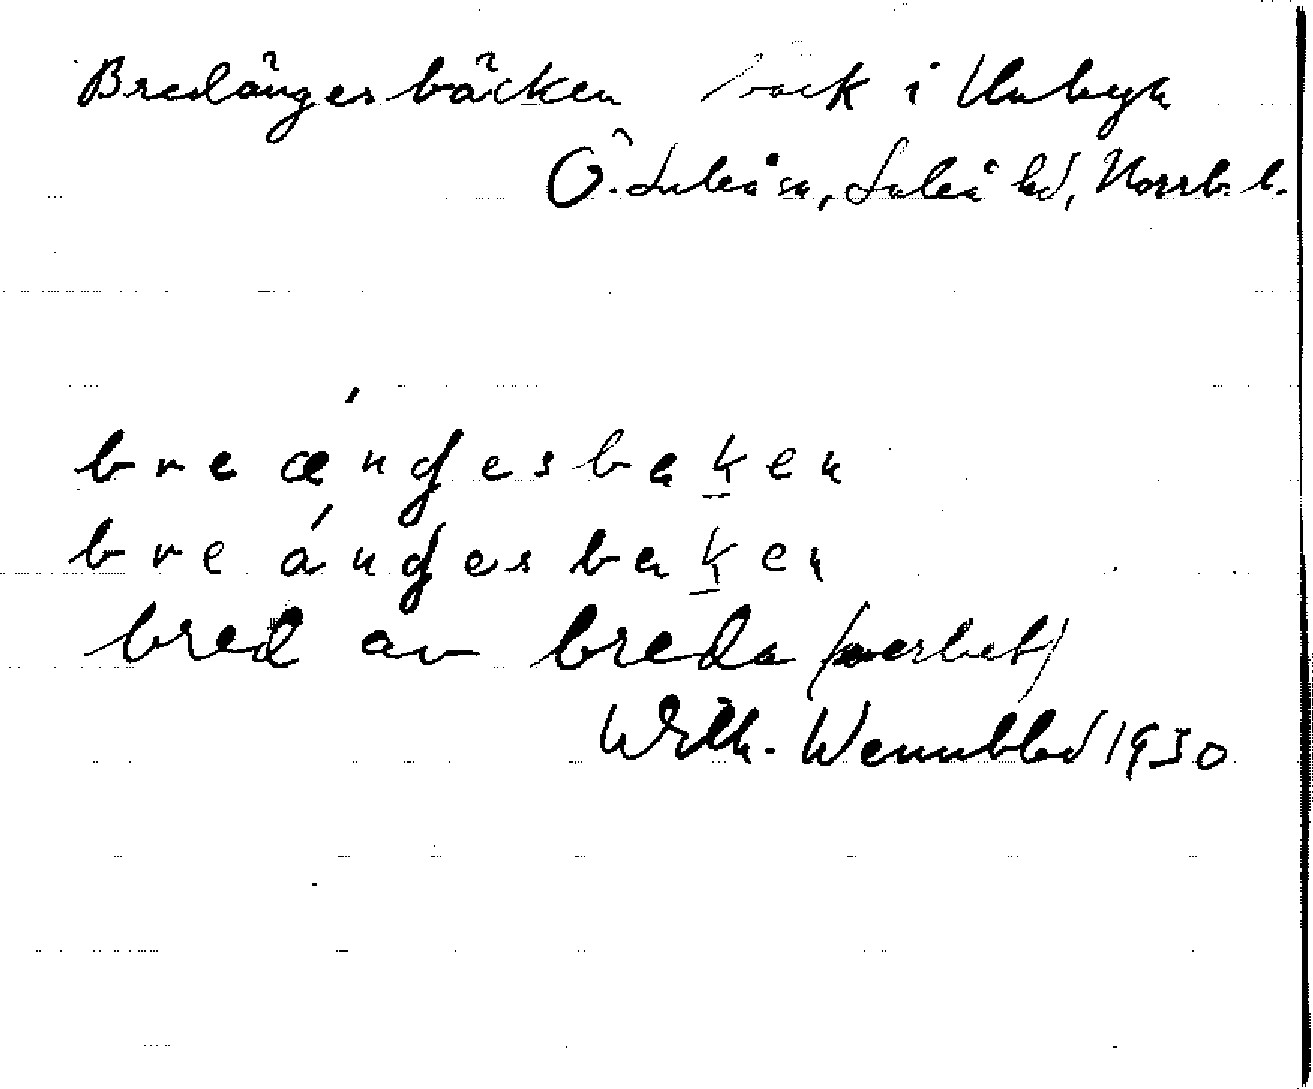 Bredängesbäcken bäck i Unbyn
Ö. Luleå sn, Luleå hd, Norrb. l.
bre ænges baken
bre ánges baken
bred av breda (verbet)
Wilh. Wennblad 1930